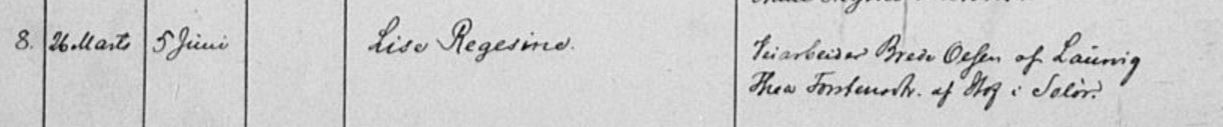 8. 26 Marts 5 Juni Lise Regesine.
Veiarbeider Brede Olsen af Laurvig
Thea Torstensdtr. af Hof i Solør.